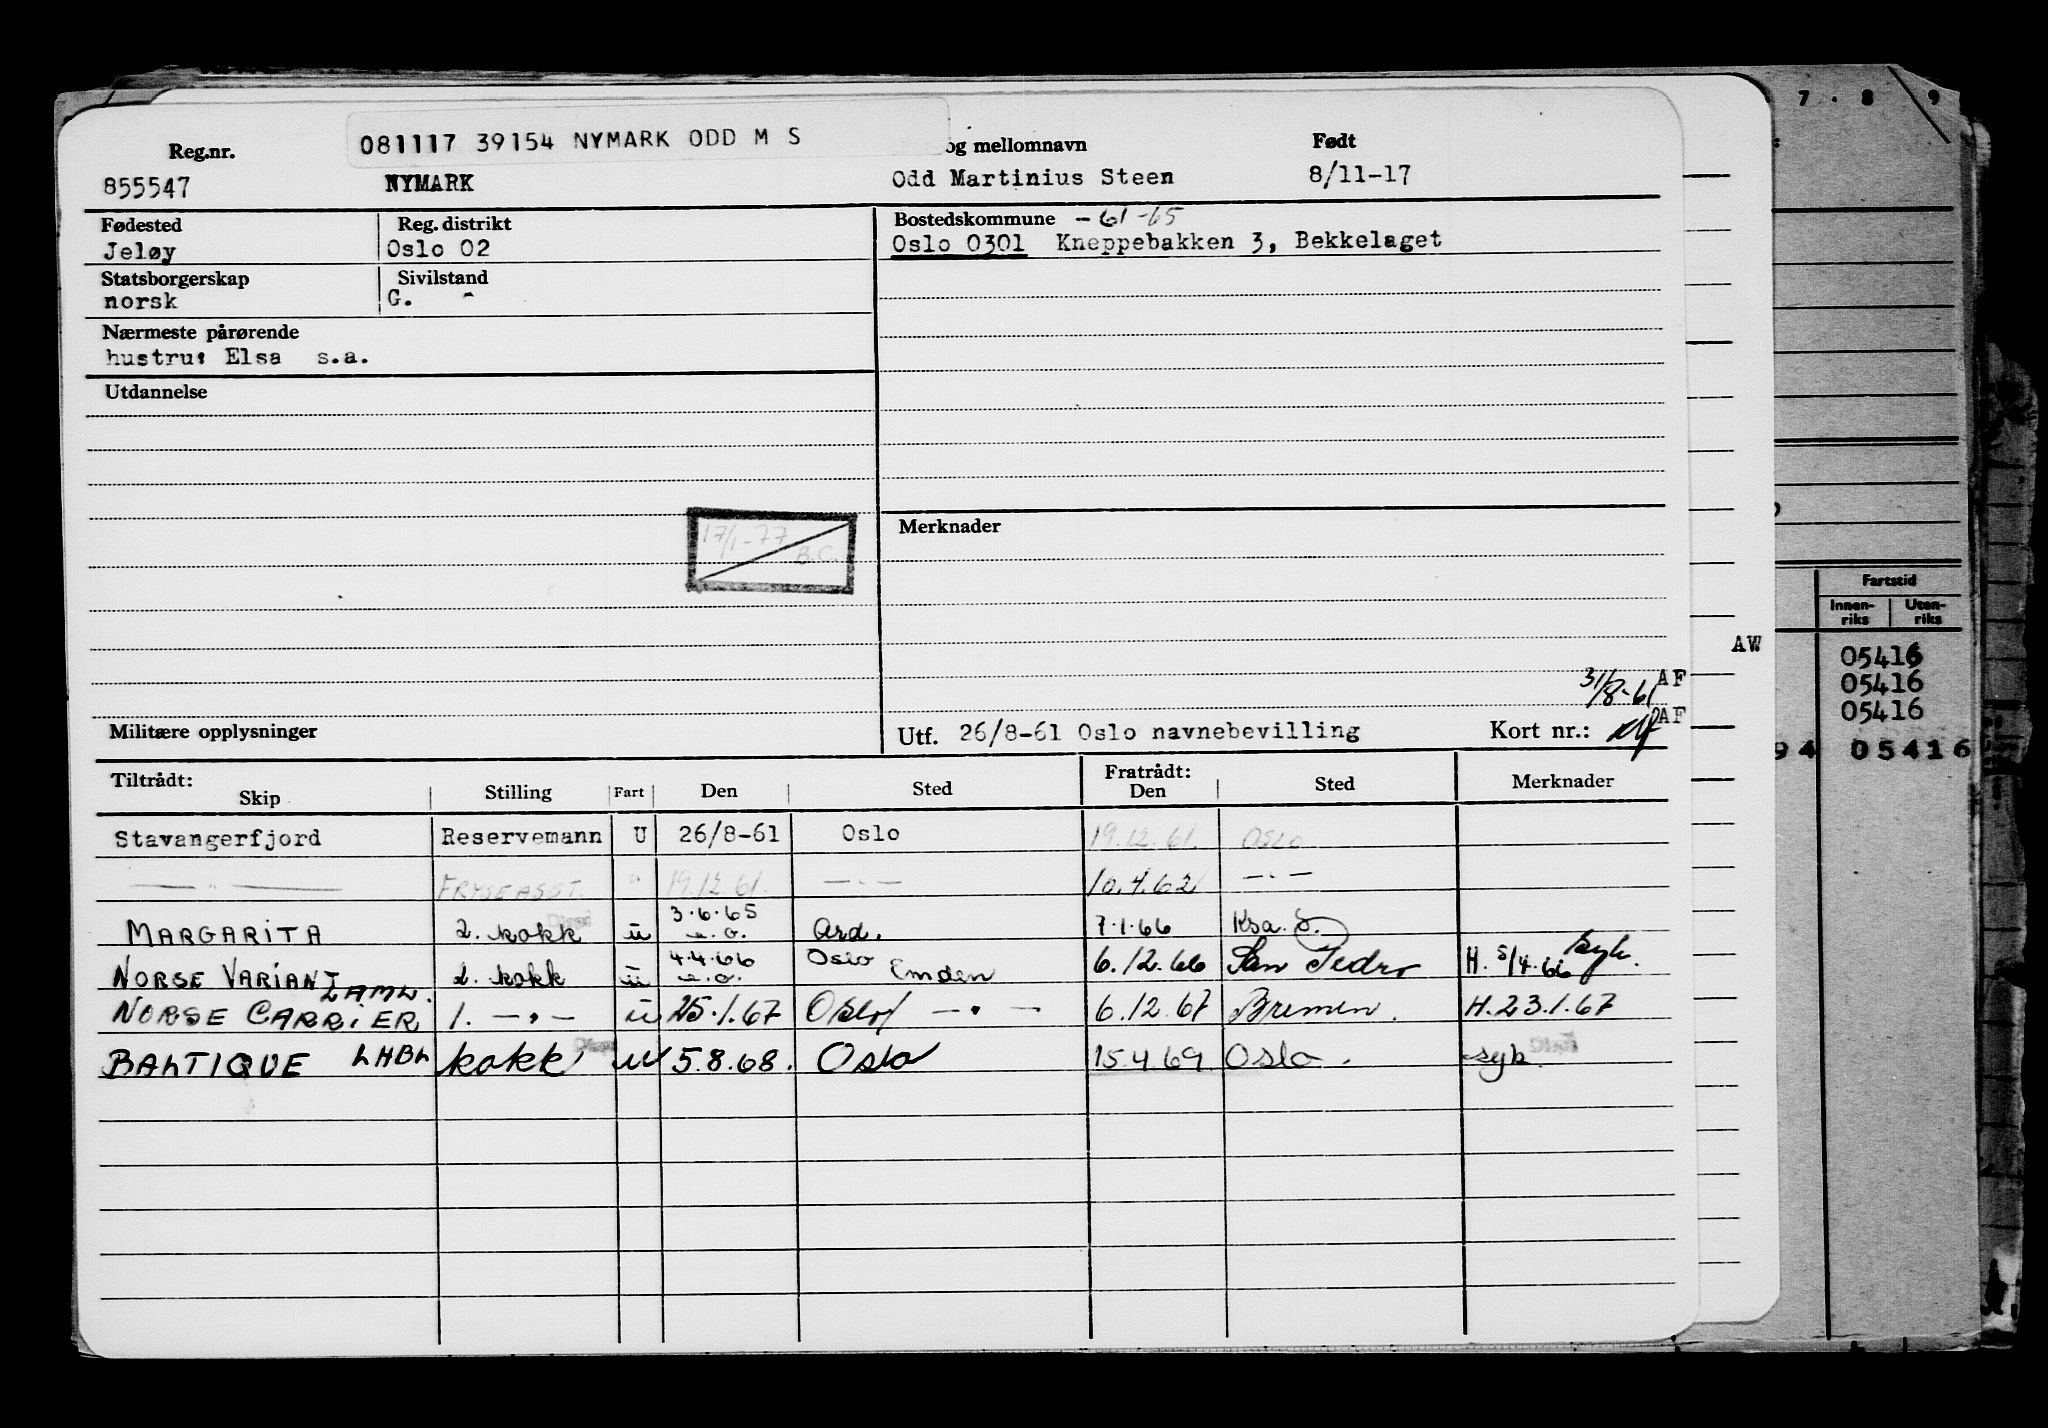 7 · 8 9
081117 39154 NYMARK ODD M S
Reg.nr. og mellomnavn Født
855547 NYMARK Odd Martinius Steen 8/11-17
Fødested Reg. distrikt Bostedskommune -61-65
Jeløy Oslo 02 Oslo 0301 Kneppebakken 3, Bekkelaget
Statsborgerskap Sivilstand
norsk G. -
Nærmeste pårørende
hustru: Elsa s.a.
Utdannelse
17/1-77
B.C.
Merknader
31/8-61 AF
AF
AW
Militære opplysninger Utf. 26/8-61 Oslo navnebevilling Kort nr.:
Tiltrådt: Fratrådt:
Skip Stilling Fart Den Sted Den Sted Merknader
Stavangerfjord Reservemann U 26/8-61 Oslo 19.12.61. OSLO
— " — FRYSEASST. " 19.12.61. — " — 10.4.62 — " —
MARGARITA 2. kokk u 3.6.65 e.o. Ard. 7.1.66 Ksa. S.
NORSE VARIANT 2. kokk u 4.4.66 e.o. Oslo Emden 6.12.66 San Pedro H. 5/4.66 syk.
NORSE CARRIER LAMW. 1. — " — u 25.1.67 Oslo — " — 6.12.67 Bremen. H. 23.1.67
BALTIQUE LHBL kokk u 5.8.68. Oslo 15.4.69 Oslo. syk.
Fartstid
Innen-riks Uten-riks
05416
05416
05416
94 05416